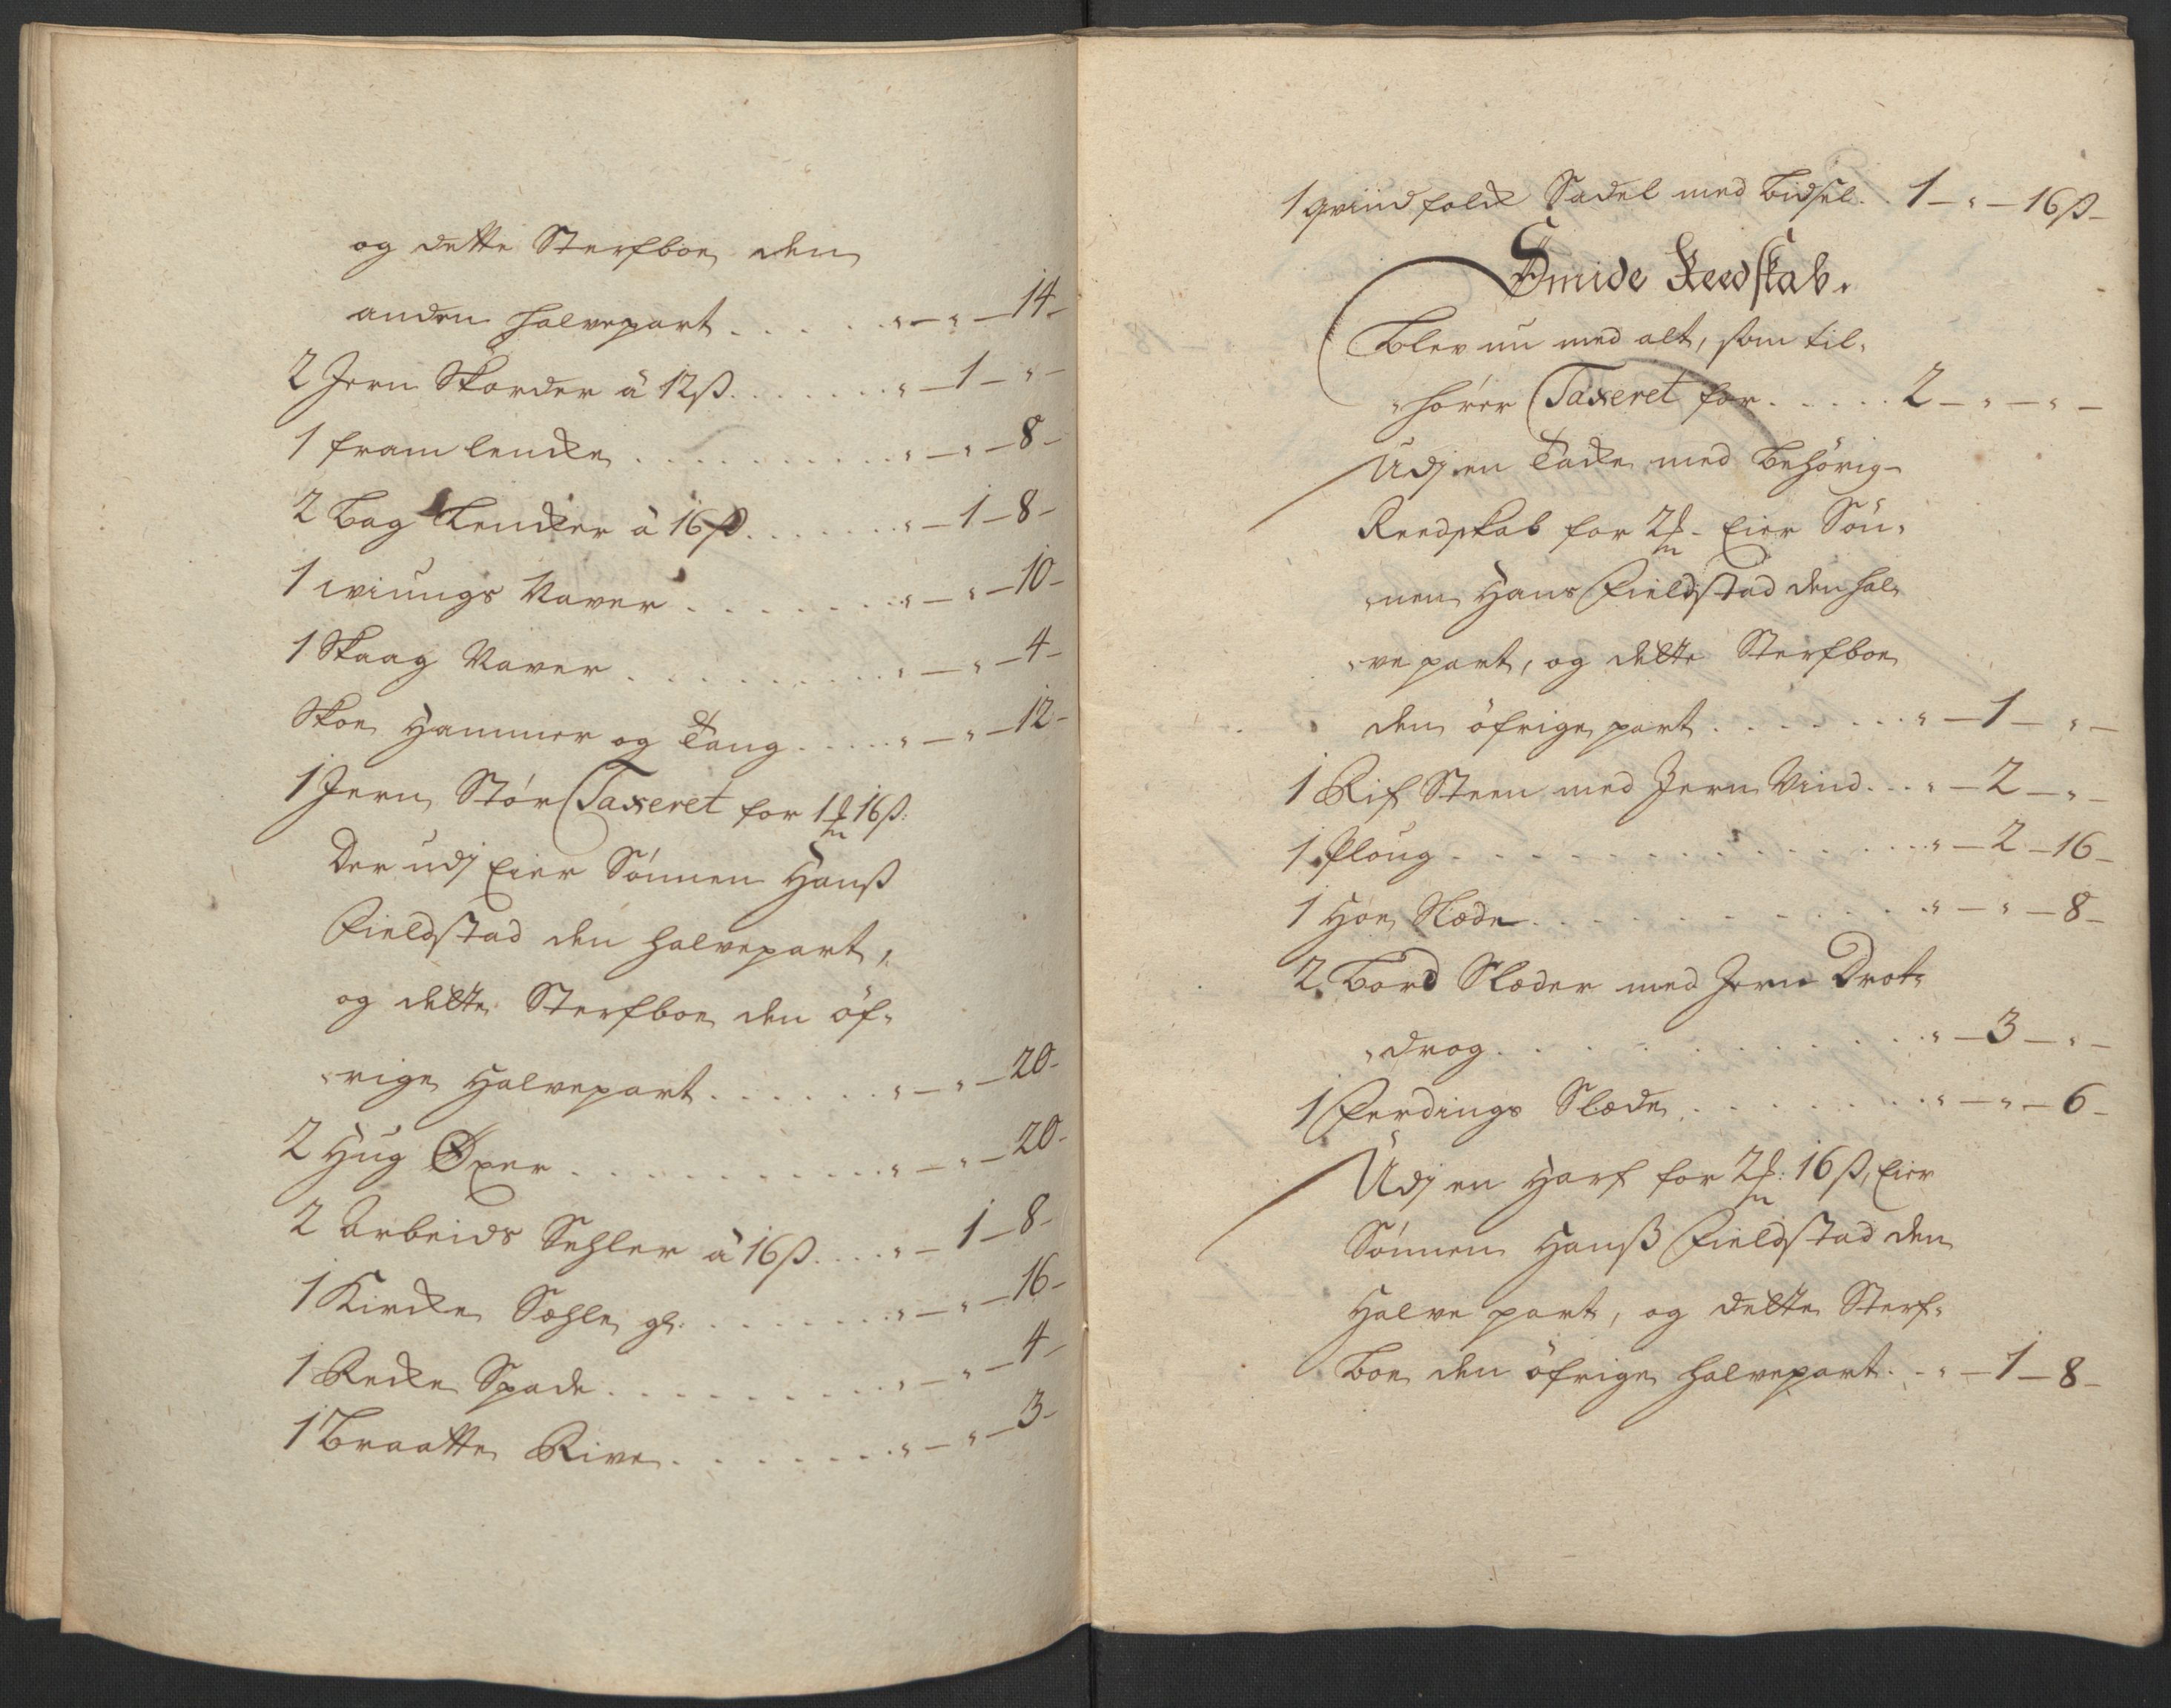 og dette Sterfboe den
anden halvepart . . . . . . " — " — 14 –
2 Jern Skorder â 12 ß. . . . . . . " — 1 — " –
1 fram lencke . . . . . . . . . . " — " — 8 –
2 Bag Lencker â 16 ß. . . . . . " — 1 — 8 –
1 wiungs Naver . . . . . . . . " — " — 10 –
1 Skaag Naver . . . . . . . . . " — " — 4 –
Skoe Hammer og Tang . . . . . " — " — 12 –
1 Jern Stør Taxeret for 1 16 ß:
Der udj Eier Sønnen Hanß
Fieldstad den halvepart,
og dette Sterfboe den öf-
-rige Halvepart . . . . . . " — " — 20 –
2 Hug Øxer . . . . . . . . . . " — " — 20 –
2 Arbeids Sehler â 16 ß. . . . " — 1 — 8 –
1 Kircke Sæhle gl. . . . . . . . " — " — 16 –
1 Recke Spade . . . . . . . . . " — " — 4 –
1 Braatte Rive . . . . . . . . " — " — 3 –
1 qviindfolck Sadel med Bidsel . 1 — " — 16 ß –
Smide Reedskab.
Blev nu med alt, som til-
-hører Taxeret for . . . . . 2 — " — " –
Udj en Tacke med Behörig
Reedskab for 2 Eier Søn-
-nen Hans Fieldstad den hal-
-ve part, og dette Sterfboe
den öfrige part . . . . . . . . " — 1 — " –
1 Rif Steen med Jern Vind . . . " — 2 — " –
1 Ploug . . . . . . . . . . . . . . " — 2 — 16 –
1 Høe Slæde . . . . . . . . . . . " — " — 8 –
2 Bord Slæder med Jern Drot-
-drog . . . . . . . . . . . . . " — 3 — " –
1 Ferdings Slæde . . . . . . . . " — " — 6 –
Udj en Harf for 2 : 16 ß, Eier
Sønnen Hanß Fieldstad den
Halve part, og dette Sterf-
boe den öfrige halvepart . . " — 1 — 8 –